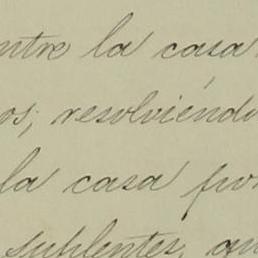 ntre la casa
os, resolviéndo
la casa por
suplentes, qu